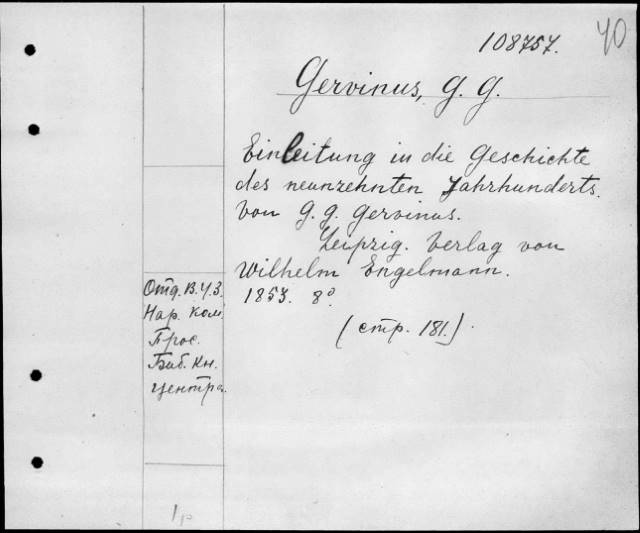 108757.
40
Gervinus, G. G.
Einleitung in die Geschichte
des neunzehnten Jahrhunderts.
von G. G. Gervinus.
Leipzig. Verlag von
Wilhelm Engelmann.
1853. 8°
(стр. 181.)
Отд. В.У.З.
Нар. Ком.
Прос.
Биб. Кн.
центра.
1р